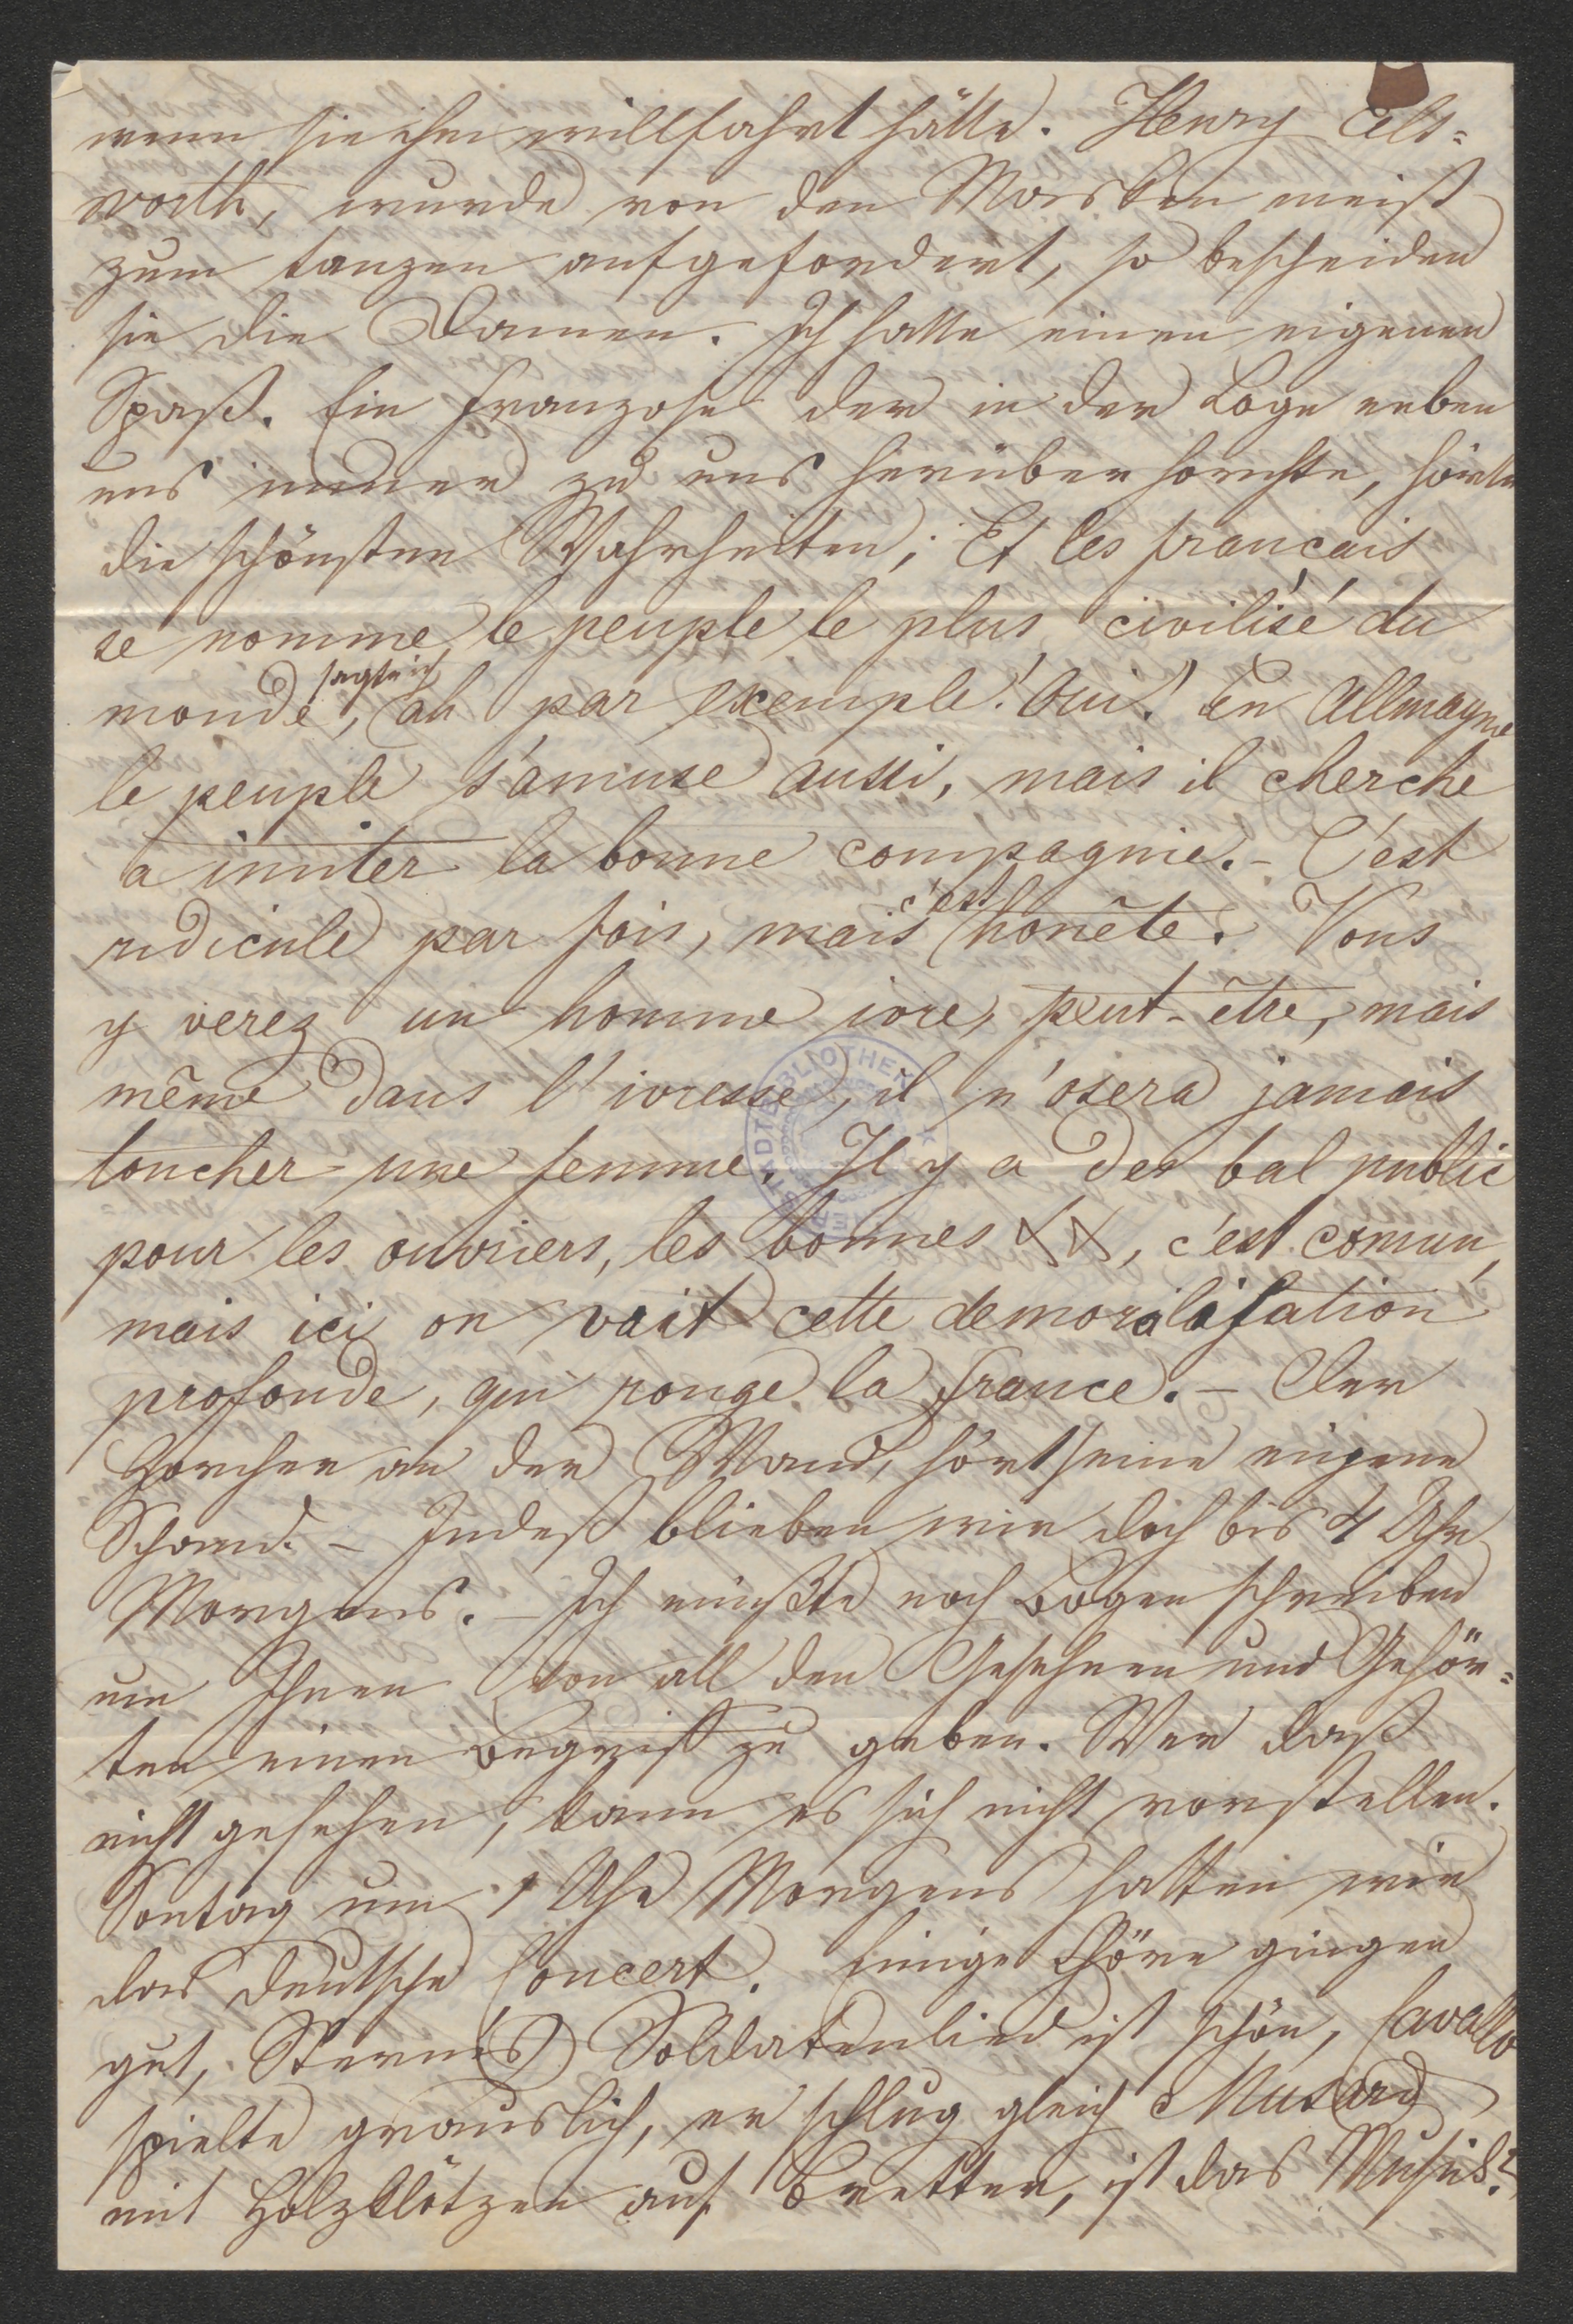 wenn sie ihm willfahrt hätte. Henry
worth, wurde von den Masken meist
zum tanzen aufgefordert, so bescheiden
sie die Damen. Ich hatte einen eigenen
Spaß. Ein Franzose der in der Loge neben
uns immer zu uns herüber horchte, hörte
die schönsten Wahrheiten; Et les français
se nomme le peuple le plus civilisé du
monde, sagte ich, ah par exemple! Oui! en Allmagne
le peuple s'amuse aussi, mais il cherche
a imiter la bonne compagnie. – C'est
ridicule par fois, mais c'est honête. Vous
y verez un homme ivre, peut-être, mais
même dans l'ivresse, il n'osera jamais
toucher une femme. Il y a des bal public
pour les ouvriers, les bonnes xx, c'est comun,
mais ici on voit cette demoralisation
profonde, qui ronge la france. – Der
Horcher an der Wand, hört seine eigene
Schand. – Indeß blieben wir doch bis 4 Uhr
Morgens. – Ich müßte noch Bogen schreiben
um Ihnen von all den Gesehnen und Gehör=
ten einen Begriff zu geben. Wer daß
nicht gesehen, kann es sich nicht vorstellen.
Sontag um 1 Uhr Morgens hatten wir
das deutsche Concert. Einige Chöre gingen
gut, Stern's Soldatenlied ist schön, Cavallo
spielte grauslich, er schlug gleich Musard
mit Holzklötzen auf Bretter, ist das Musik?